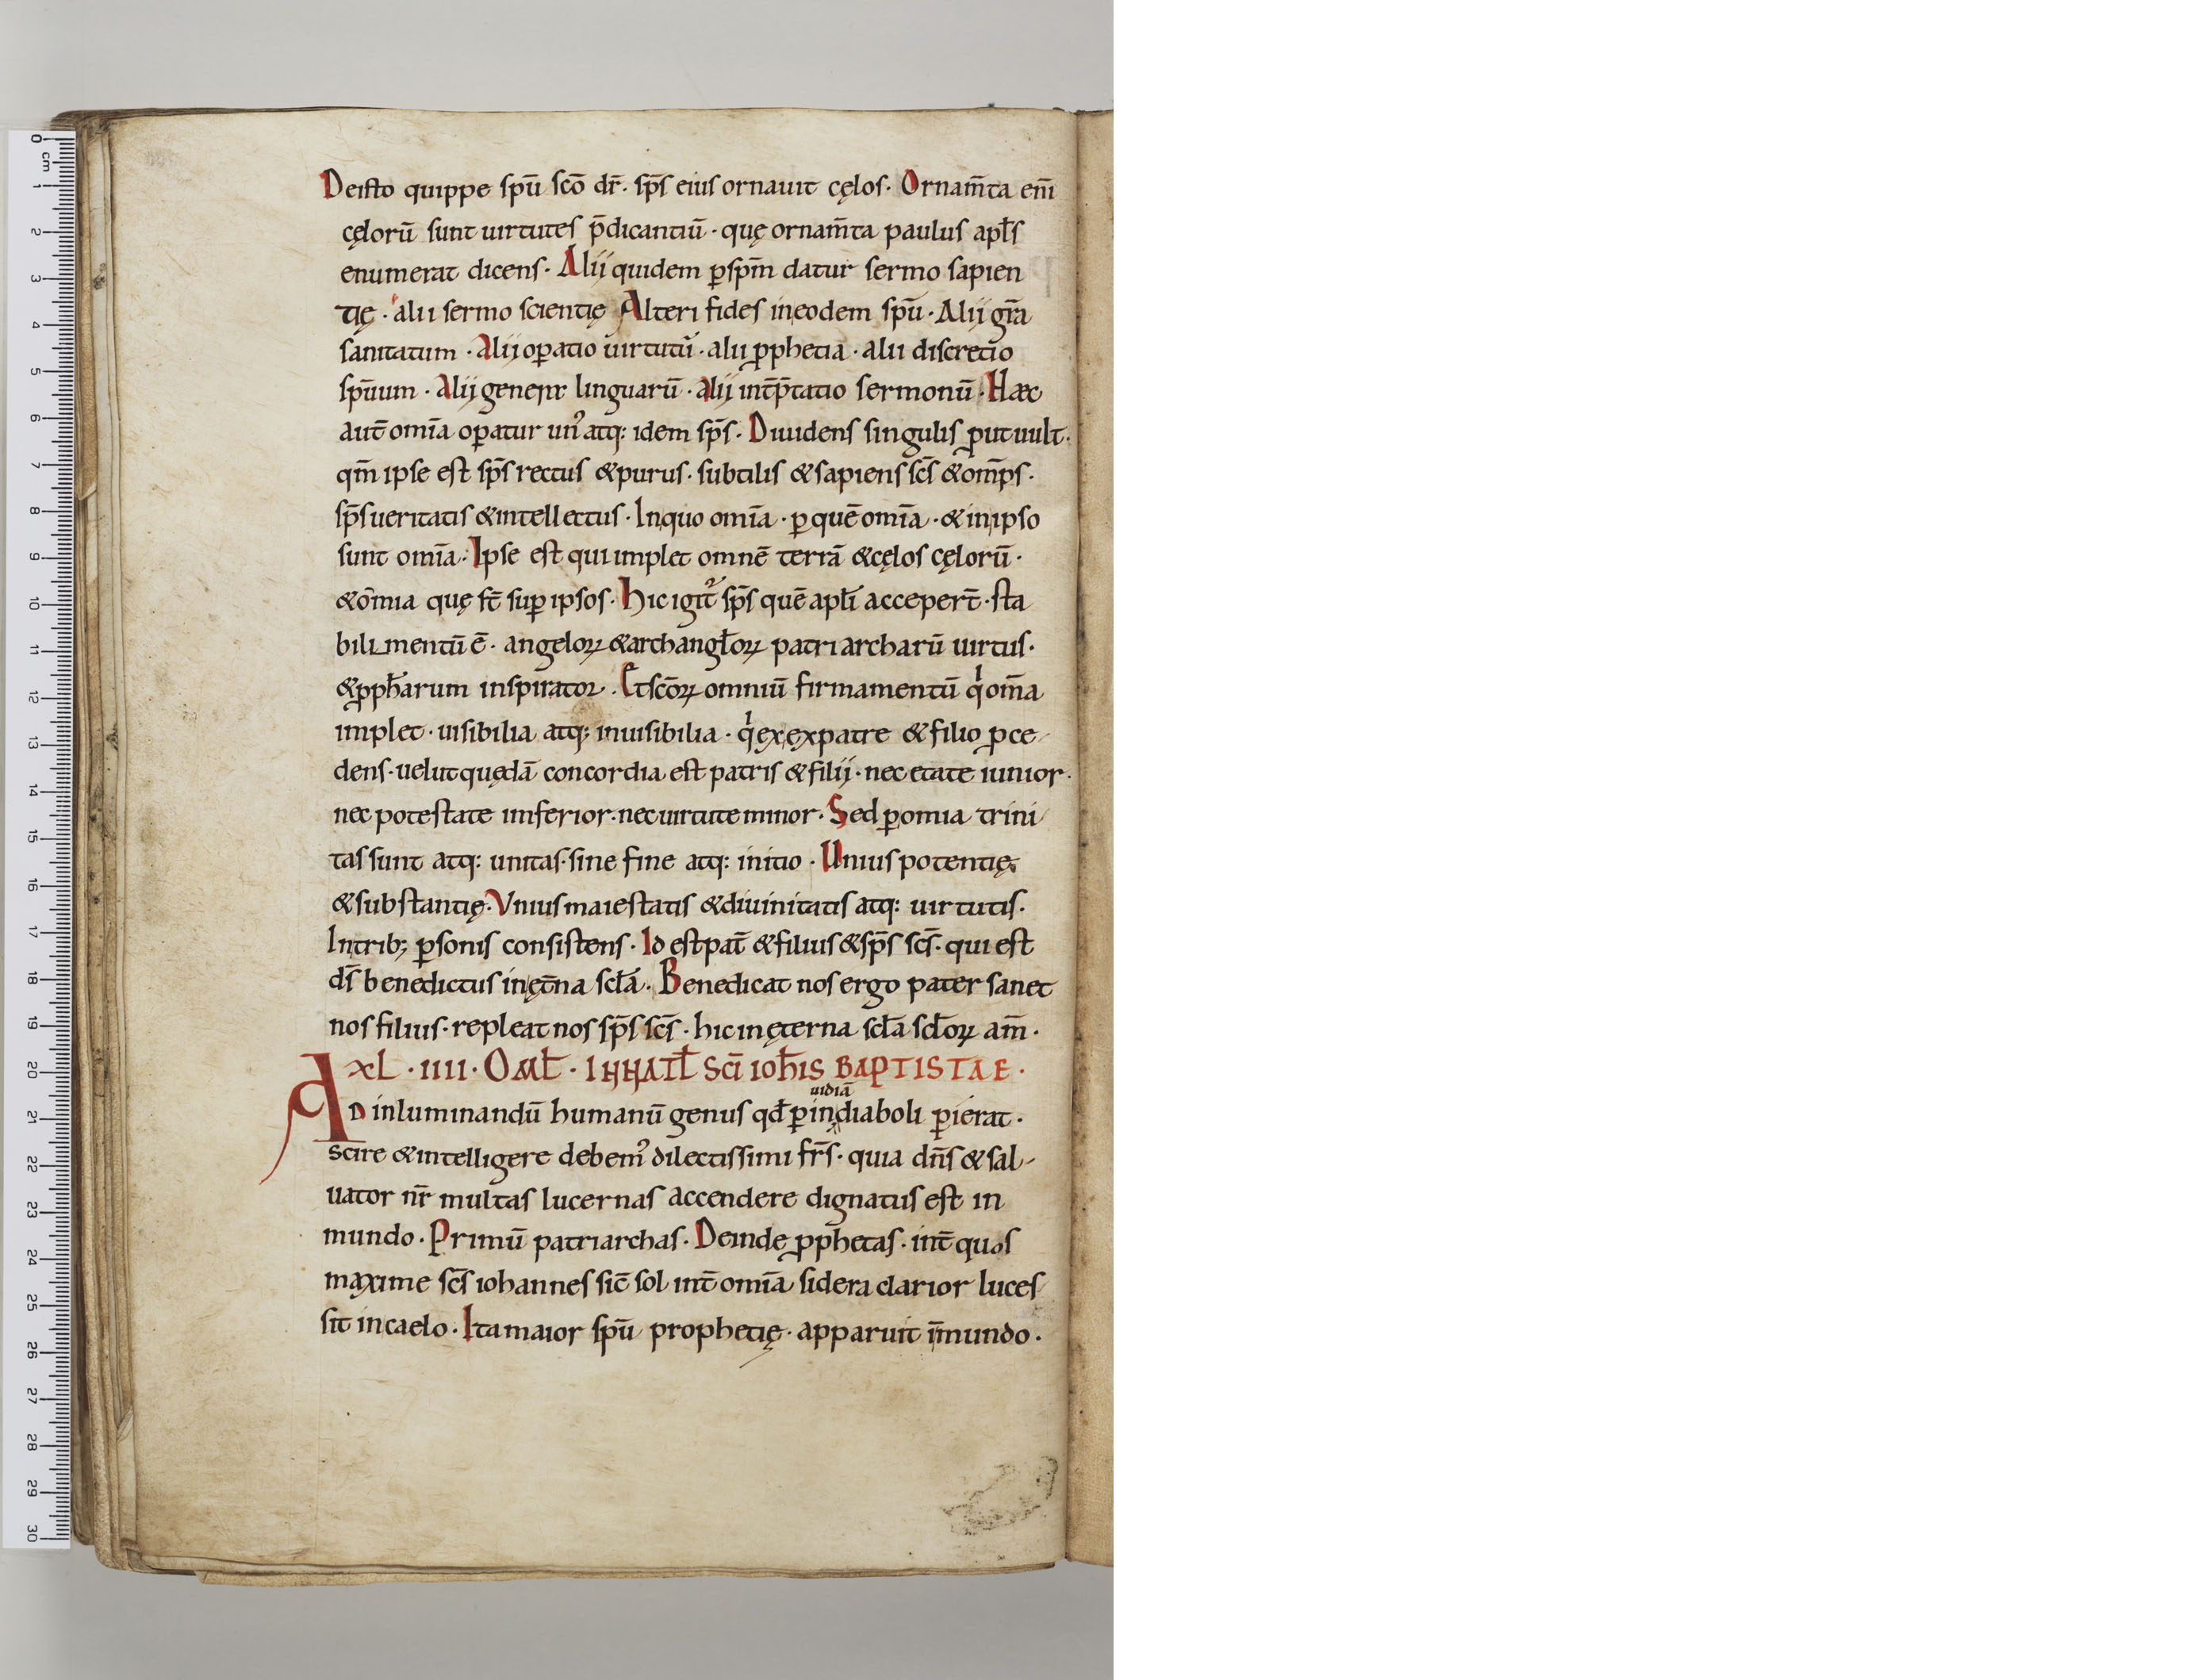 Deisto quippe spū scō dr̄. sp̄s eius ornauit cęlos. Ornam̄ta eni̅
cęlorū sunt uirtutes p̄dicantiū. quę ornam̄ta paulus apl̄s
enumerat dicens. Alij quidem ꝑ spm̄ datur sermo sapien
tię. alii sermo scientię Alteri fides in eodem spū. Alij gr̄a
sanitatum. Alij oꝑatio uirtutū. alii ꝓphetia. alii discretio
spūum. Alij genera linguarū. alij int̄p̄tatio sermonū. Haec
aut̄ omīa oꝑatur un᾽ atq: idem sp̄s. Diuidens singulis ꝓut uult.
qm̄ ipse est sp̄s rectus & purus. subtilis & sapiens sc̄s & om̄ps.
sp̄s ueritatis & intellectus. In quo omīa. ꝑ quē omīa. & in ipso
sunt omīa. Ipse est qui implet omnē terrā & cęlos cęlorū.
& ōmia quę st̄ suꝑ ipsos. Hic igit᾽ sp̄s quē apl̄i acceper̄t. sta
bilimentū ē. angeloꝝ & archangl̄oꝝ patriarcharū uirtus.
& ꝓph̄arum inspirator. Et sc̄oꝝ omniū firmamentū qⁱ om̄a
implet. uisibilia atq: inuisibilia. qⁱ ex ex patre & filio ꝓce-
dens. uelut quędā concordia est patris & filij. nec etate iunior.
nec potestate imferior. nec uirtute minor. Sed ꝑ omia trini-
tas sunt atq: unitas. sine fine atq: initio. Unius potentię
& substantię. Vnius maiestatis & diuinitatis atq: uirtutis.
In trib; ꝑsonis consistens. Id est pat̄ & filius & sp̄s sc̄s. qui est
ds̄ benedictus in ęt̄na scl̄a. Benedicat nos ergo pater sanet
nos filius. repleat nos sp̄s sc̄s. hic in ęterna scl̄a scl̄oꝝ am̄.
XL.IIII. OMl̄. IN NATl̄ Sc̄i ioh̄is BAPTISTAE.
uidiā
AD inluminandū humanū genus qđ ꝑ in diaboli ꝑierat.
scire & intelligere debem᾽ dilectissimi fr̄s. quia dn̄s & sal-
uator nr̄ multas lucernas accendere dignatus est in
mundo. Primū patriarchas. Deinde ꝓph̄etas. int̄ quos
maxime sc̄s iohannes sic̄ sol int̄ omīa sidera clarior luces-
sit in caelo. Ita maior spū prophetię. apparuit im̄undo.